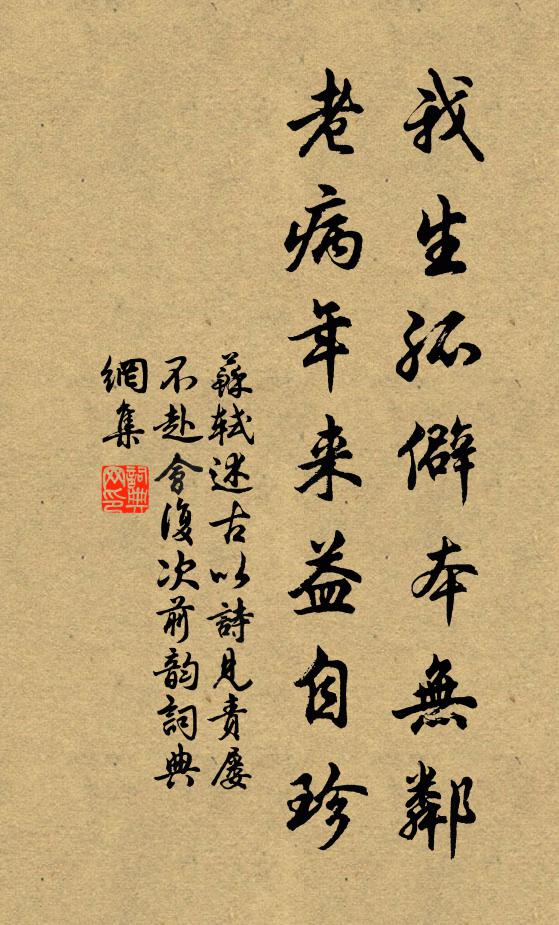 我生孤僻本無鄰
老病年来益自珍
蘇軾述古以詩見責屢
不赴會復次前韵詞典
網集
詞典
网印